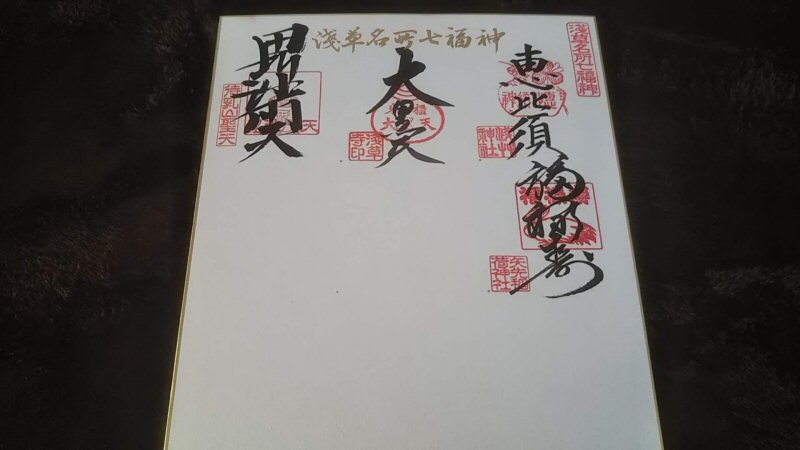 浅草名所七福神
淺草名所七福神
恵比須
浅草神社
福禄寿
矢先稲荷神社
大黒天
浅草寺印
毘沙門天
待乳山聖天